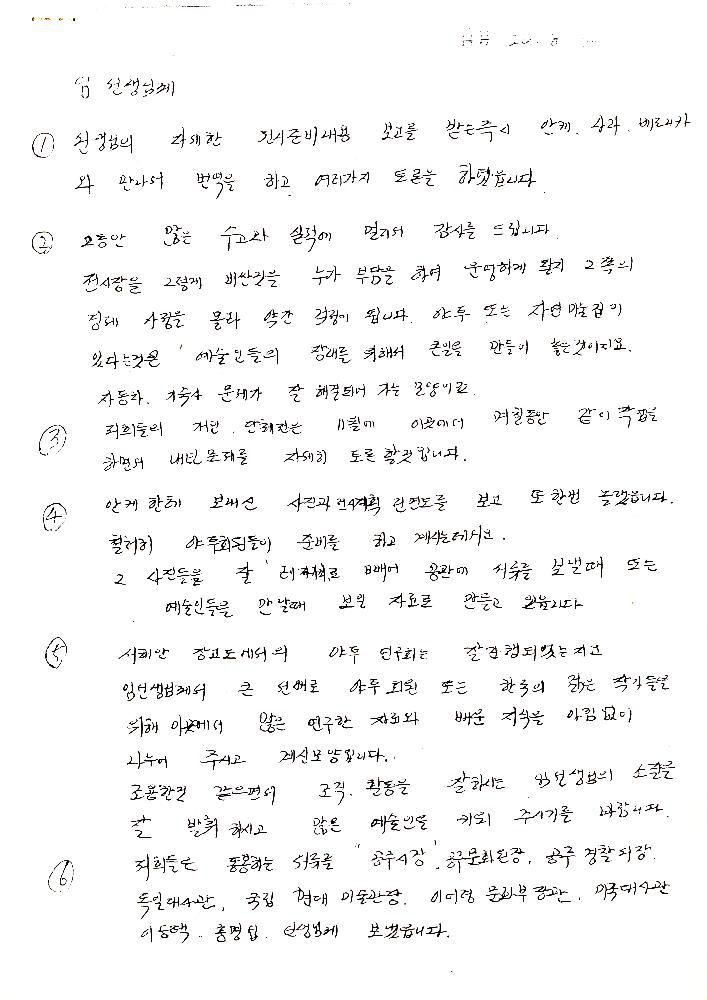 임 선생님께
① 선생님의 자세한 전시준비내용 보고를 받는즉시 안케, 상과, 베로니카
와 만나서 번역을 하고 여러가지 토론을 하였읍니다.
② 그동안 많은 수고와 실력에 멀리서 감사를 드립니다.
전시장을 그렇게 비싼것을 누가 부담을 하며 운영하게 될지 그쪽의
경제 사정을 몰라 약간 걱정이 됩니다. 야투 또는 자연미술집이
있다는것은 예술인들의 장래를 위해서 큰일을 만들어 놓는것이지요.
자동차, 기숙사 문제가 잘 해결되어 가는 모양이고.
③ 저희들의 저번 함전은 11월에 이곳에서 며칠동안 같이 작업을
하면서 내년문제를 자세히 토론 할것입니다.
④ 안케한테 보내신 사진과 전시계획 린언도를 보고 또한번 놀랬습니다.
철저히 야투회원들이 준비를 하고 계시는데서요.
그 사진들을 잘 빼어 공관에 서류를 보낼때 또는
예술인들을 만날때 보일 자료로 만들고 있읍니다
⑤ 서해안 장고도에서의 야투 연구회는 잘 진행되었는지요
임선생님께서 큰 선배로 야투회원 또는 한국의 젊은 작가들을
위해 이곳에서 많은 연구한 자료와 배운 지식을 아낌없이
나누어 주시고 계신모양입니다.
조용한것 같으면서 조직, 활동을 잘하시는 임선생님의 소질을
잘 발휘 하시고 많은 예술인을 키워 주시기를 바랍니다.
⑥ 저희들은 동봉하는 서류를 "공주시장", 공주문화원장, 공주 경찰서장,
독일대사관, 국립 현대 미술관장, 이어령 문화부장관, 미국대사관
이승택, 홍명섭, 선생님께 보냈읍니다.